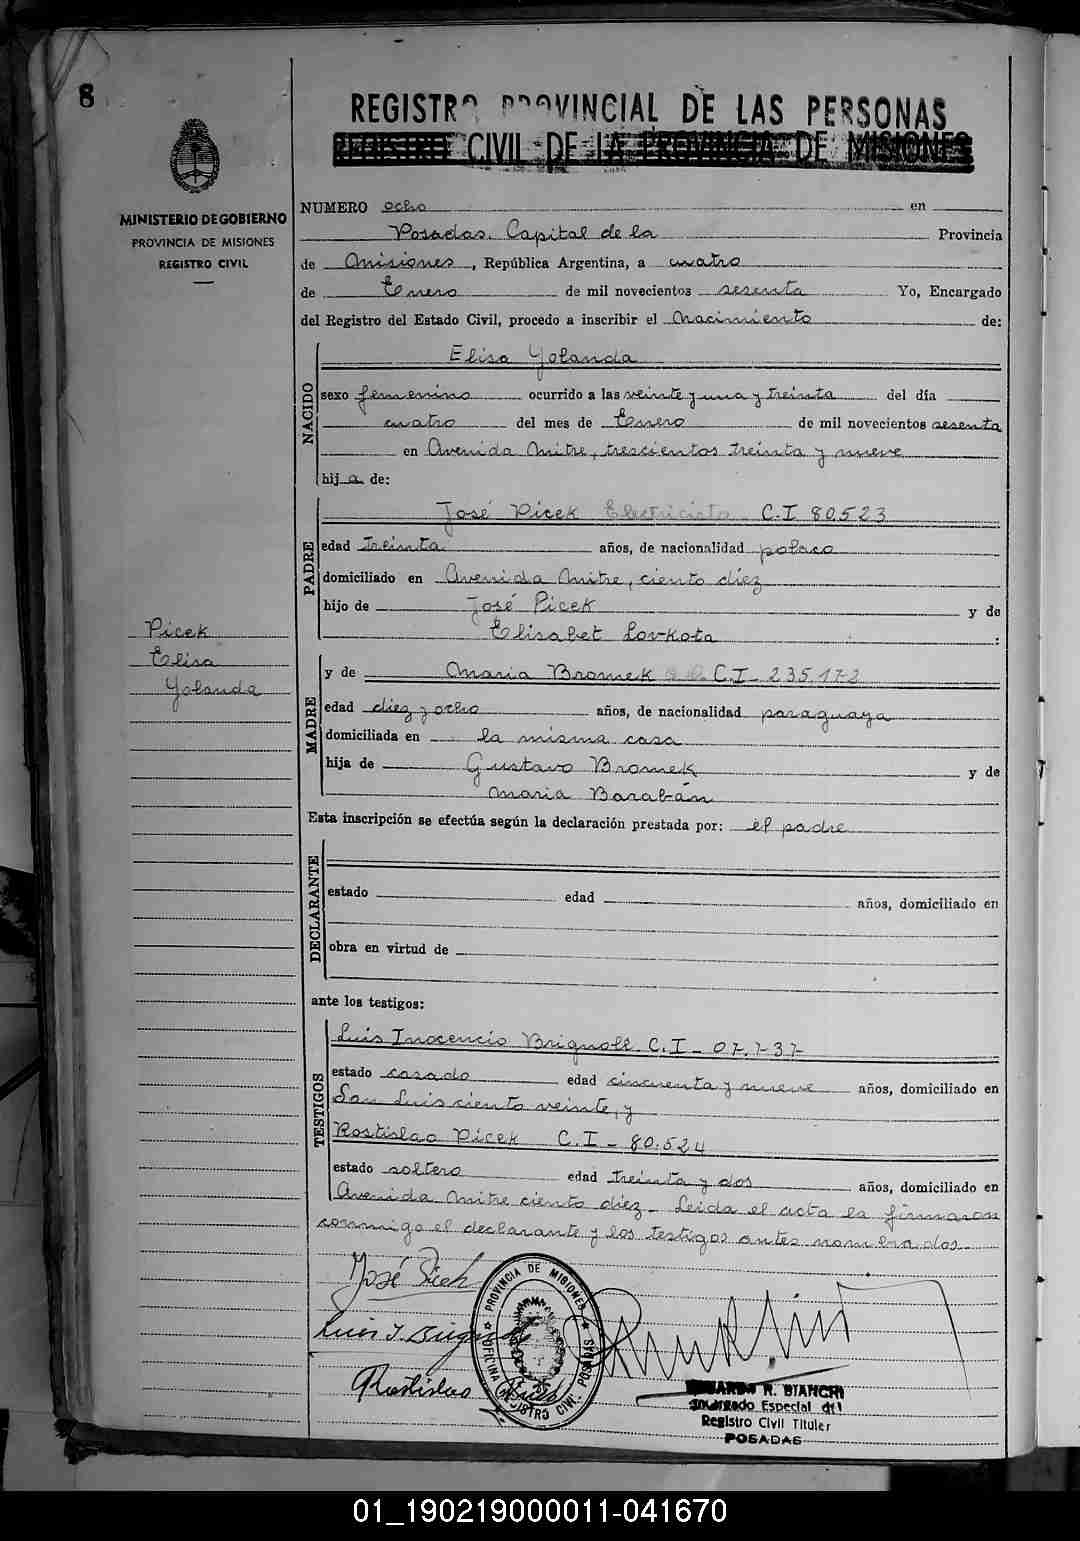 8
REGISTRO PROVINCIAL DE LAS PERSONAS
REGISTRO CIVIL DE LA PROVINCIA DE MISIONES
MINISTERIO DE GOBIERNO
PROVINCIA DE MISIONES
REGISTRO CIVIL
NUMERO ocho en
Posadas. Capital de la Provincia
de Misiones, República Argentina, a cuatro
de Enero de mil novecientos sesenta Yo, Encargado
del Registro del Estado Civil, procedo a inscribir el Nacimiento de:
NACIDO
Elisa Yolanda
sexo femenino ocurrido a las veinte y una y treinta del día
cuatro del mes de Enero de mil novecientos sesenta
en Avenida Mitre, trescientos treinta y nueve
hija de:
PADRE
José Picek Electricista C.I 80.523
edad treinta años, de nacionalidad polaco
domiciliado en Avenida Mitre, ciento diez
hijo de José Picek y de
Elisabet Lovkota :
Picek
Elisa
Yolanda
MADRE
y de Maria Bromek C.I - 235.172
edad diez y ocho años, de nacionalidad paraguaya
domiciliada en la misma casa
hija de Gustavo Bromek y de
Maria Barabán
Esta inscripción se efectúa según la declaración prestada por: el padre
DECLARANTE
estado edad años, domiciliado en
obra en virtud de
ante los testigos:
TESTIGOS
Luis Inocencio Brignole C.I - 07.737
estado casado edad cincuenta y nueve años, domiciliado en
San Luis ciento veinte, y
Rostislao Picek C.I - 80.524
estado soltero edad treinta y dos años, domiciliado en
Avenida Mitre ciento diez - Leida el acta la firmaron
conmigo el declarante y los testigos antes nombrados
José Picek
Luis I. Brignole
Rostislao Picek
PROVINCIA DE MISIONES
OFICINA REGISTRO CIVIL POSADAS
EDUARDO R. BIANCHI
Encargado Especial del
Registro Civil Titular
POSADAS
01_190219000011-041670